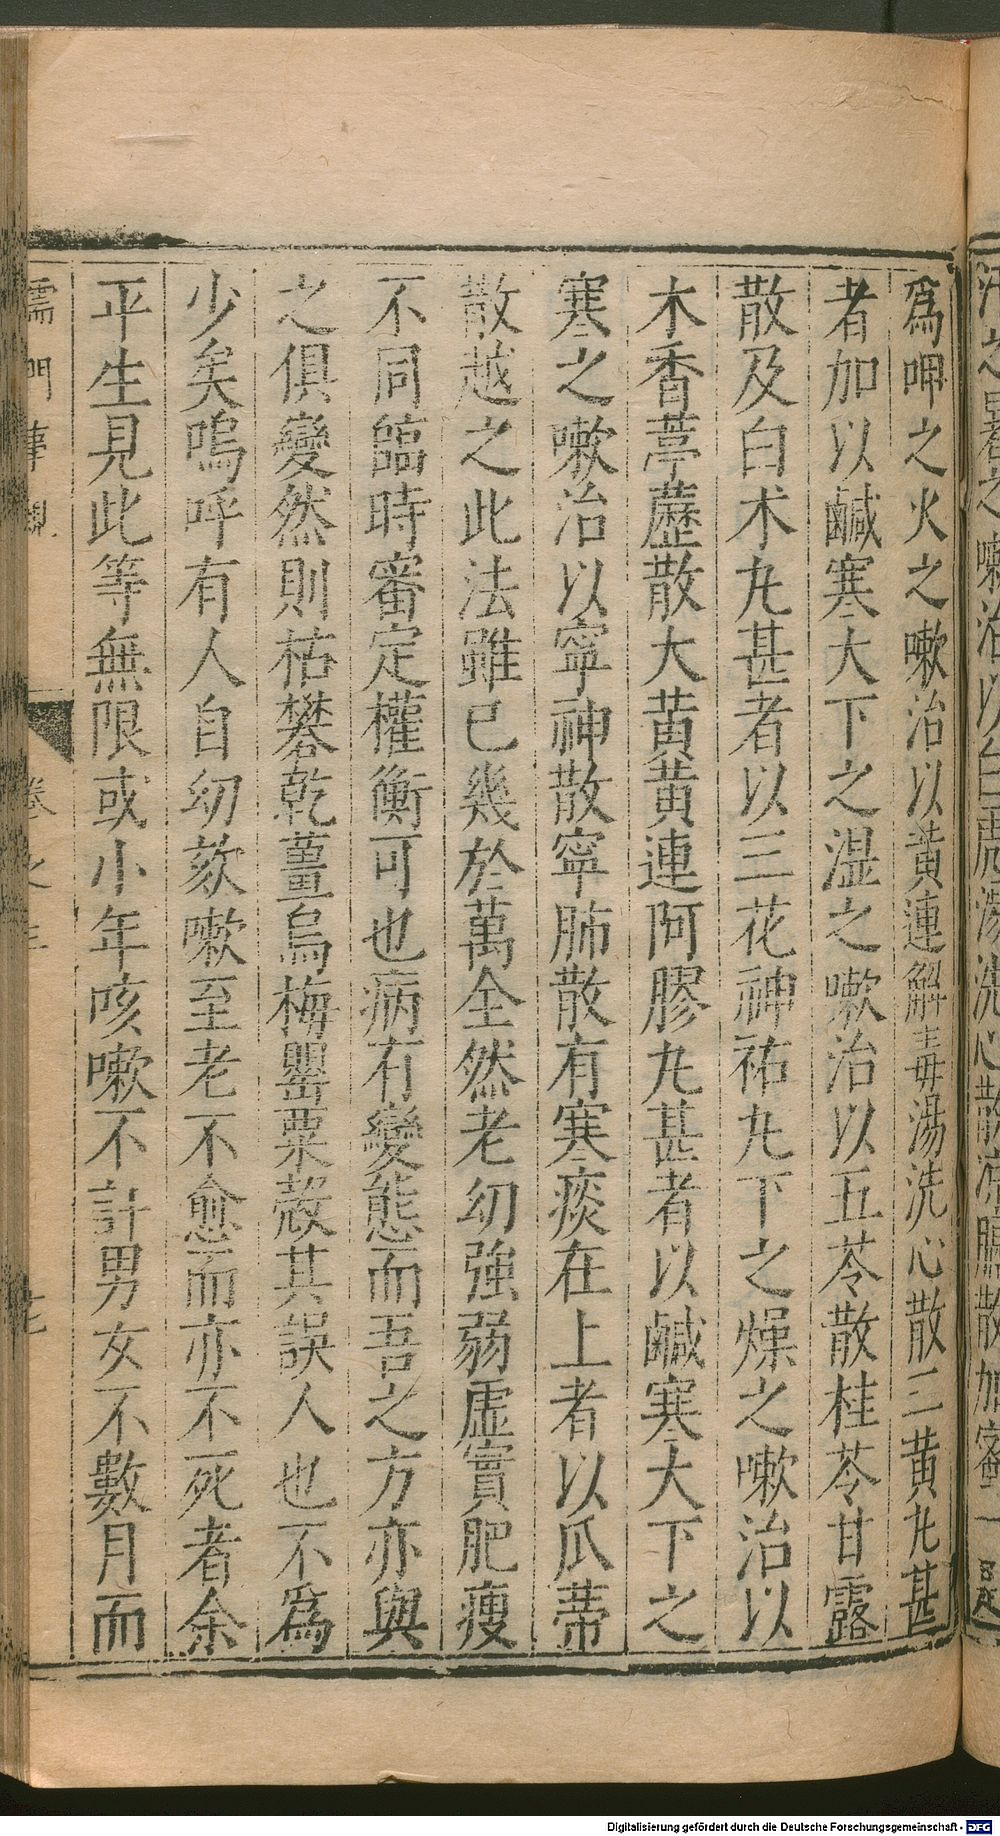 爲呷之火之嗽治以黄連解毒湯洗心散三黄丸甚
者加以鹹寒大下之湿之嗽治以五苓散桂苓甘露
散及白术丸甚者以三花神祐丸下之燥之嗽治以
木香葶藶散大黄黄連阿膠丸甚者以鹹寒大下之
寒之嗽治以寧神散寧肺散有寒痰在上者以瓜蒂
散越之此法雖已幾於萬全然老幼強弱虛實肥瘦
不同臨時審定權衡可也病有變態而吾之方亦與
之俱變然則枯礬乾薑烏梅罌粟殼其誤人也不爲
少矣嗚呼有人自幼欬嗽至老不愈而亦不死者余
平生見此等無限或小年咳嗽不計男女不數月而
儒門事親 卷之三
之嗽治以白虎湯洗心散凉膈散加蜜一
Digitalisierung gefördert durch die Deutsche Forschungsgemeinschaft - DFG